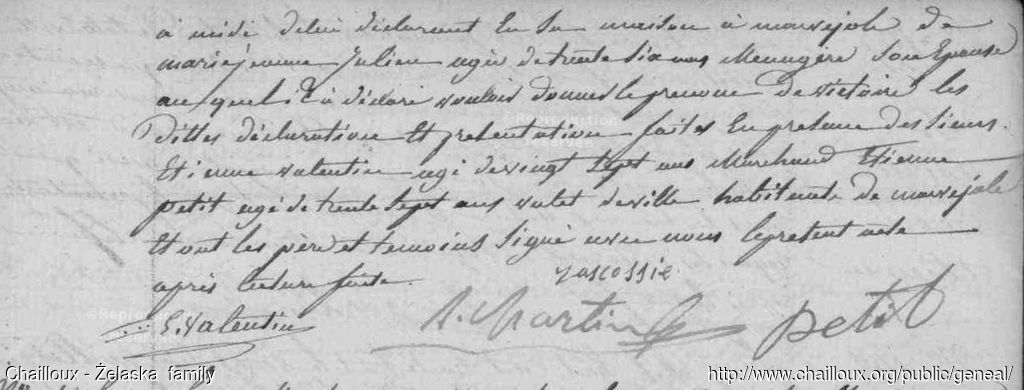 à midi de lui déclarant En Sa maison à marvejols de
marie jeanne Julien agée de trente six ans Menagère Son Epouse
auquel il à déclaré vouloir donner le prenom de victoire les
dittes déclaration Et presentation faites En presence des Sieurs
Etienne valentin agé de vingt Sept ans Marchand Etienne
petit agé de trente Sept ans valet de ville habitants de marvejols
Et ont les père et temoins Signé avec nous le présent acte
après lecture faite.
jascossie
E. Valentin A. Martin petit
Chailloux - Żelaska family http://www.chailloux.org/public/geneal/